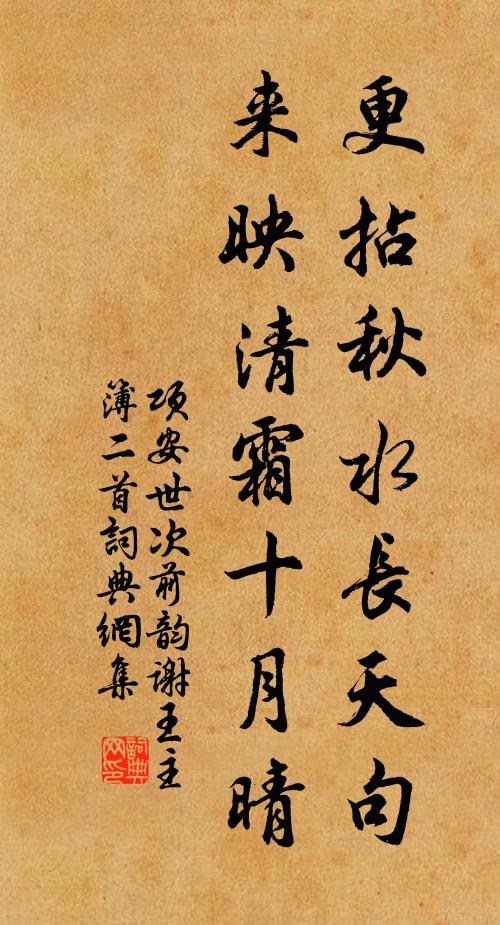 更拈秋水長天句
来映清霜十月晴
項安世次前韵谢王主
簿二首詞典網集
詞典网印